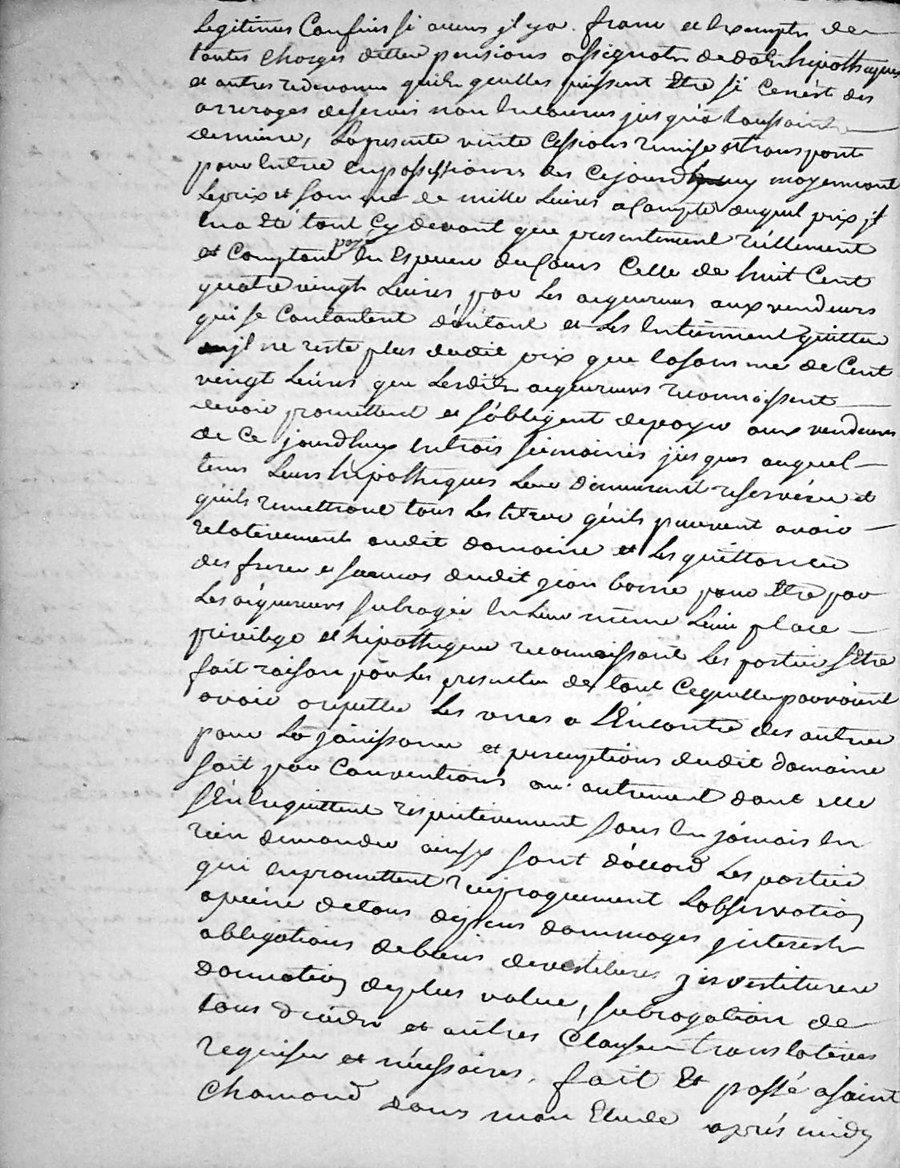 Legitimes Confins si aucuns jl ya. franc et Exempte de
toutes charges dettes pensions assignats de dot hipotheques
et autres redevances quils quelles puissent Etre si cenést des
arrerages deservis non Encourus jusqu'a toussaints
derniere, Lapresente vente Cessions remise et transporte
pour Entrer Enpossessions des Cejourdhuy moyennant
Leprix et somme de mille Livres acompte duquel prix jl
En a Eté tant Cy devant que presentement réellement
et Comptant payé En Especes du Cours Celle de huit Cent
quatre vingt Livres par Les aquereurs aux vendeurs
qui se Contantent d'autant et Les En tiennent quittes
jl ne reste plus dudit prix que lasomme de Cent
vingt Livres que Lesdits aquereurs reconnoissent
devoir promettent et s'obligent depayer aux vendeurs
de Ce jourdhuy Entrois semaines jusques auquel
tems Leurs hipotheques Leur demeurent reservées et
quils remettront tous Les titres qu'ils peuvent avoir
relativement audit domaine et Les quittances
des freres et soeurs dudit jean pour Etre par
Les aquereurs subrogés En Leur même Lieu place
privilege et hipotheque reconnaissant Les parties s'Etre
fait raison par Les presentes de tout Cequelles pouvoient
avoir a repetter Les unes a L'Encontre des autres
pour La jouissance et perceptions dudit domaine
soit par Conventions ou autrement dont elles
s'Enlequittent respectivement sans En jamais En
rien demander ainsy sont d'accord Les parties
qui Enpromettent reciproquement Lobservation
apeine detous depens dommages jnterests
obligations debiens devestitures jnvestitures
donnation deplus value, subrogation de
tous droits et autres Clauses translatives
requises et necessaires. fait Et passé asaint
chamond dans mon Etude aprés midy